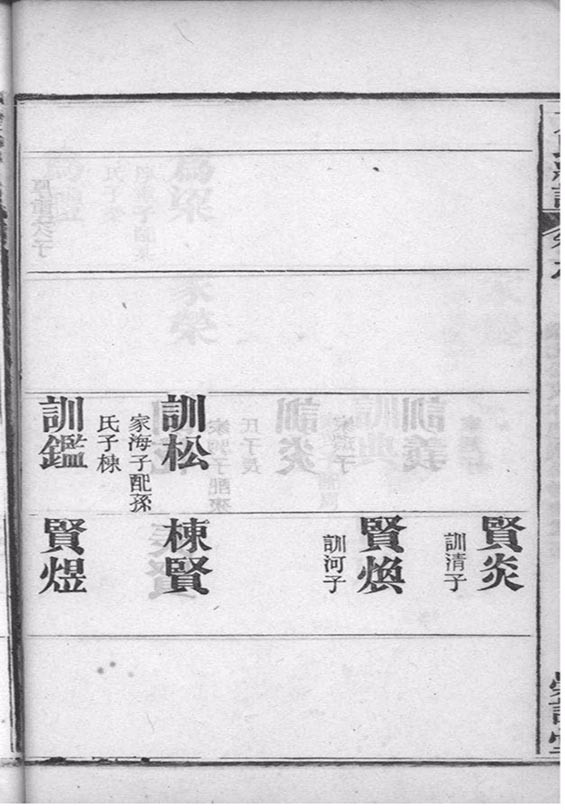 賢炎
訓清子
賢煥
訓河子
訓松
家海子配孫
氏子棟
棟賢
訓鑑
賢煜